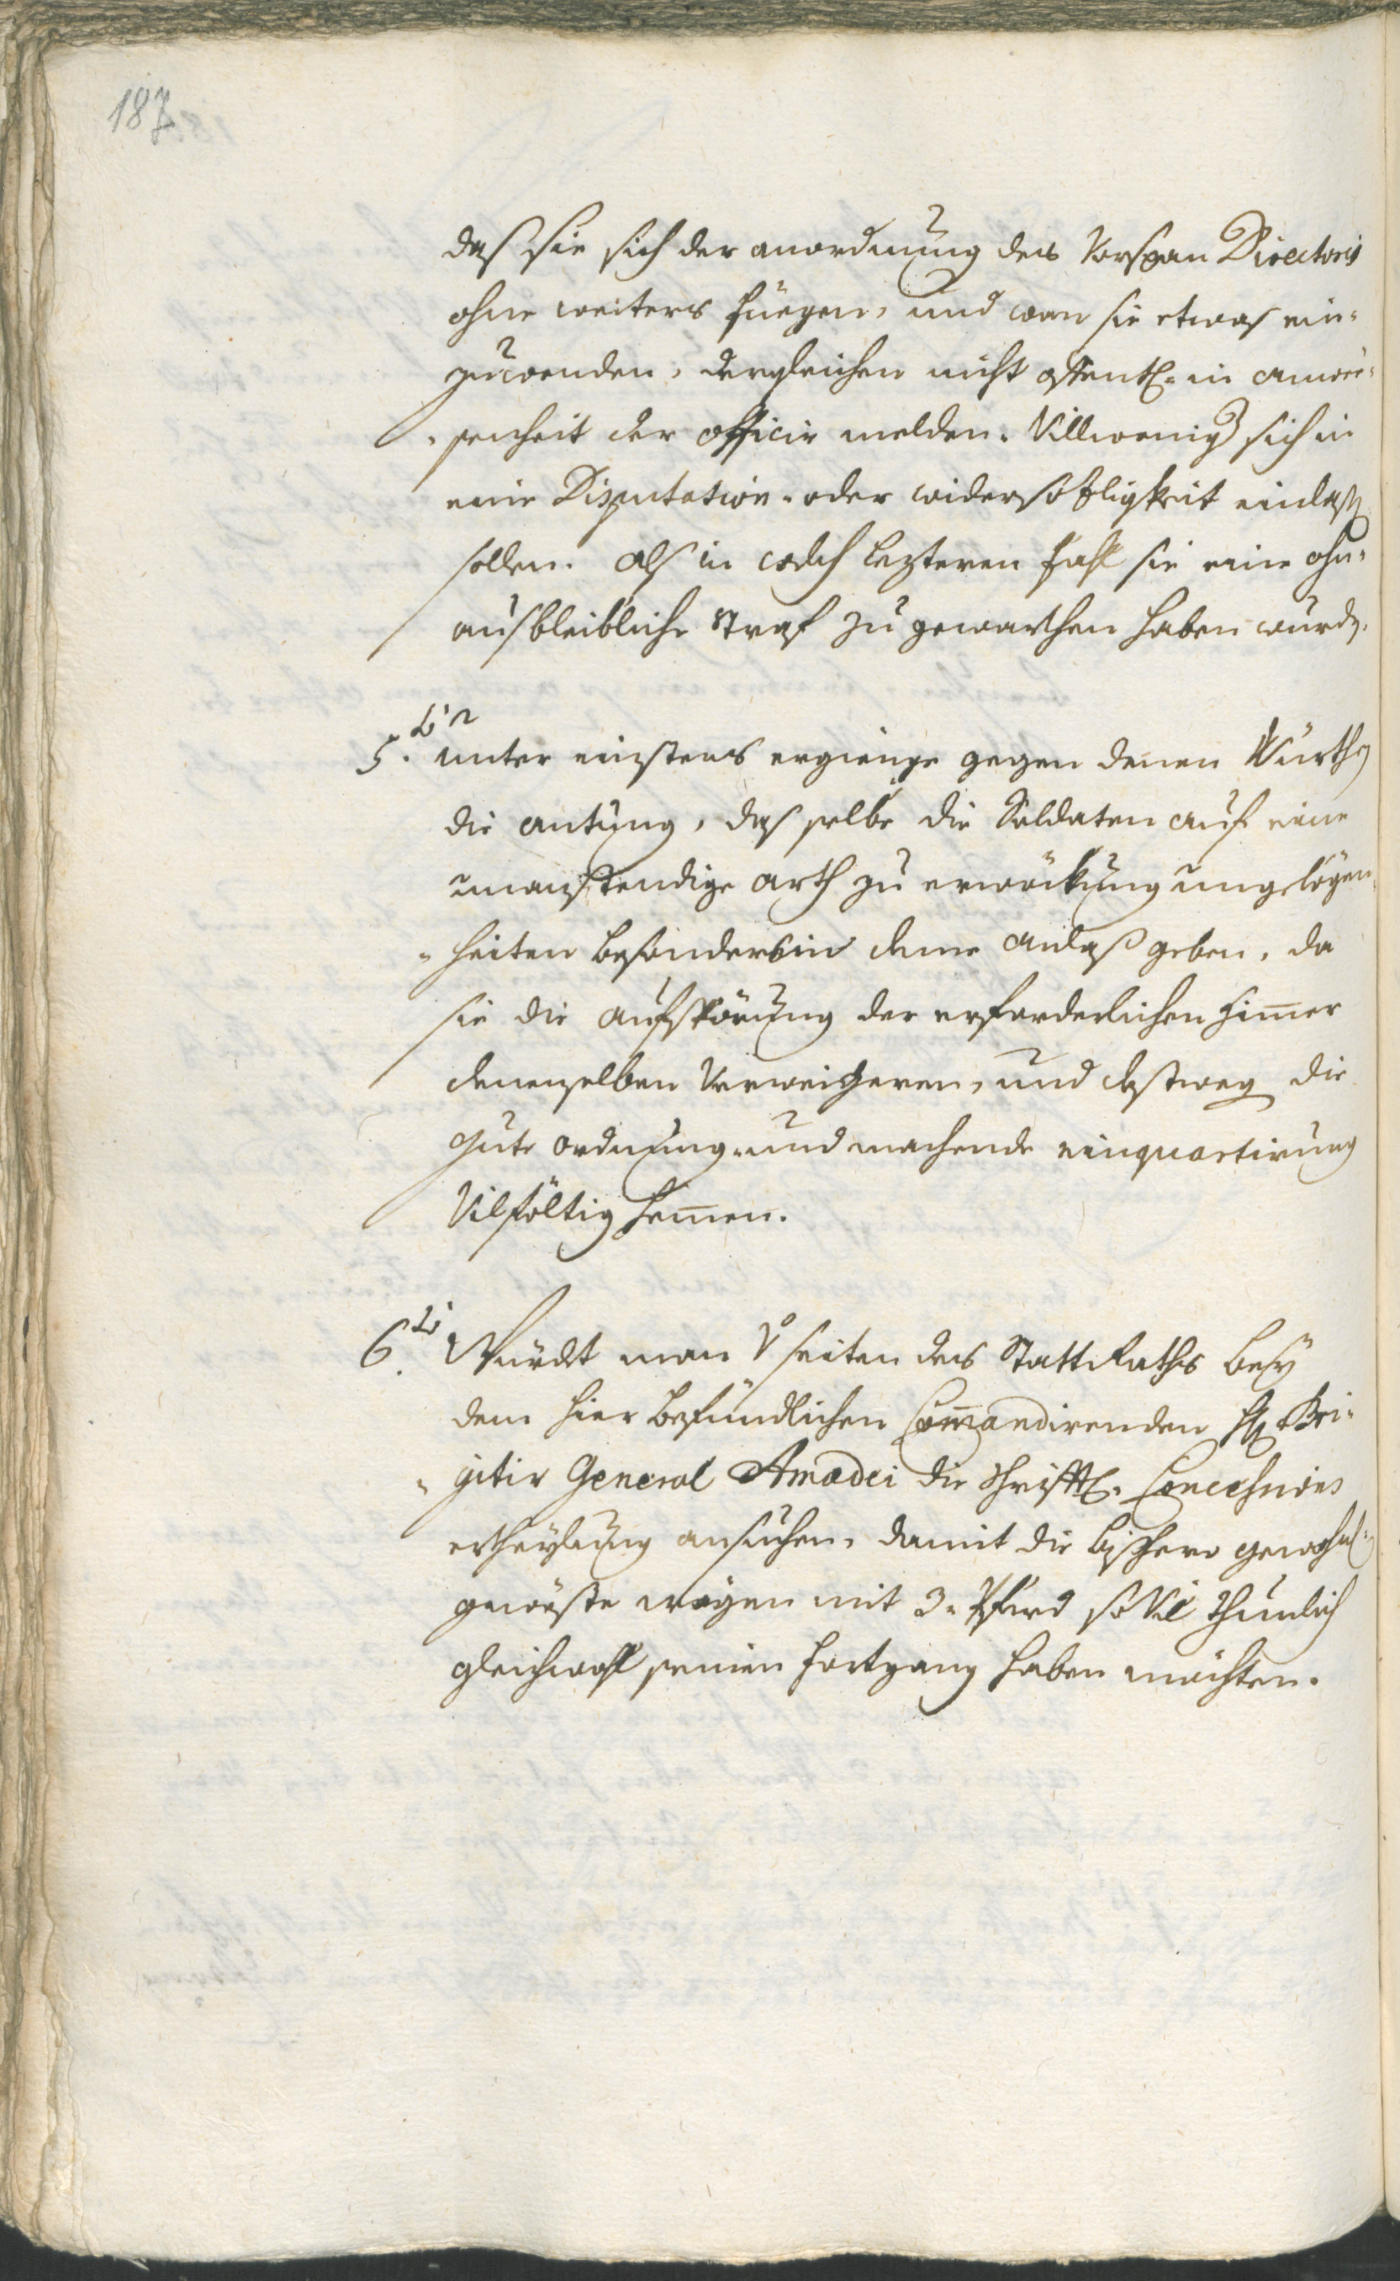 187
daß sie sich der anordnung des Vorspan Directoris
ohne weiters füegen, und wan sie etwas ein-
zuwenden, dergleichen nicht offentl. in anwe-
-senheit der officir melden. Villweniger sich in
eine Disputation- oder widersözligkeit einlassen
sollen. Als in welch lezteren fahl sie eine ohn-
ausbleibliche Straf zu gewarthen haben wurden.
5.to unter einstens ergienge gegen denen Würthen
die antung, das selbe die Soldaten auf eine
unanstendige arth zu erwöckung ungelögen-
-heiten besonders in deme anlaß geben, da
sie die aufspörung der erforderlichen Zim̅er
denenselben verweigeren, und destweg die
gute ordnung- und machende einquartirung
Vilföltig hem̅en.
6.to Würdet man V. seiten des StattRaths bey
dem hier befündlichen Com̅andirenden H. Bri-
-gitir General Amadei die schrifftl. Concessions
ertheylung ansuchen, damit die bishero gewohnl.
geweste wägen mit 3. Pferd so vil thunlich
gleichwohl seinen fortgang haben möchten.